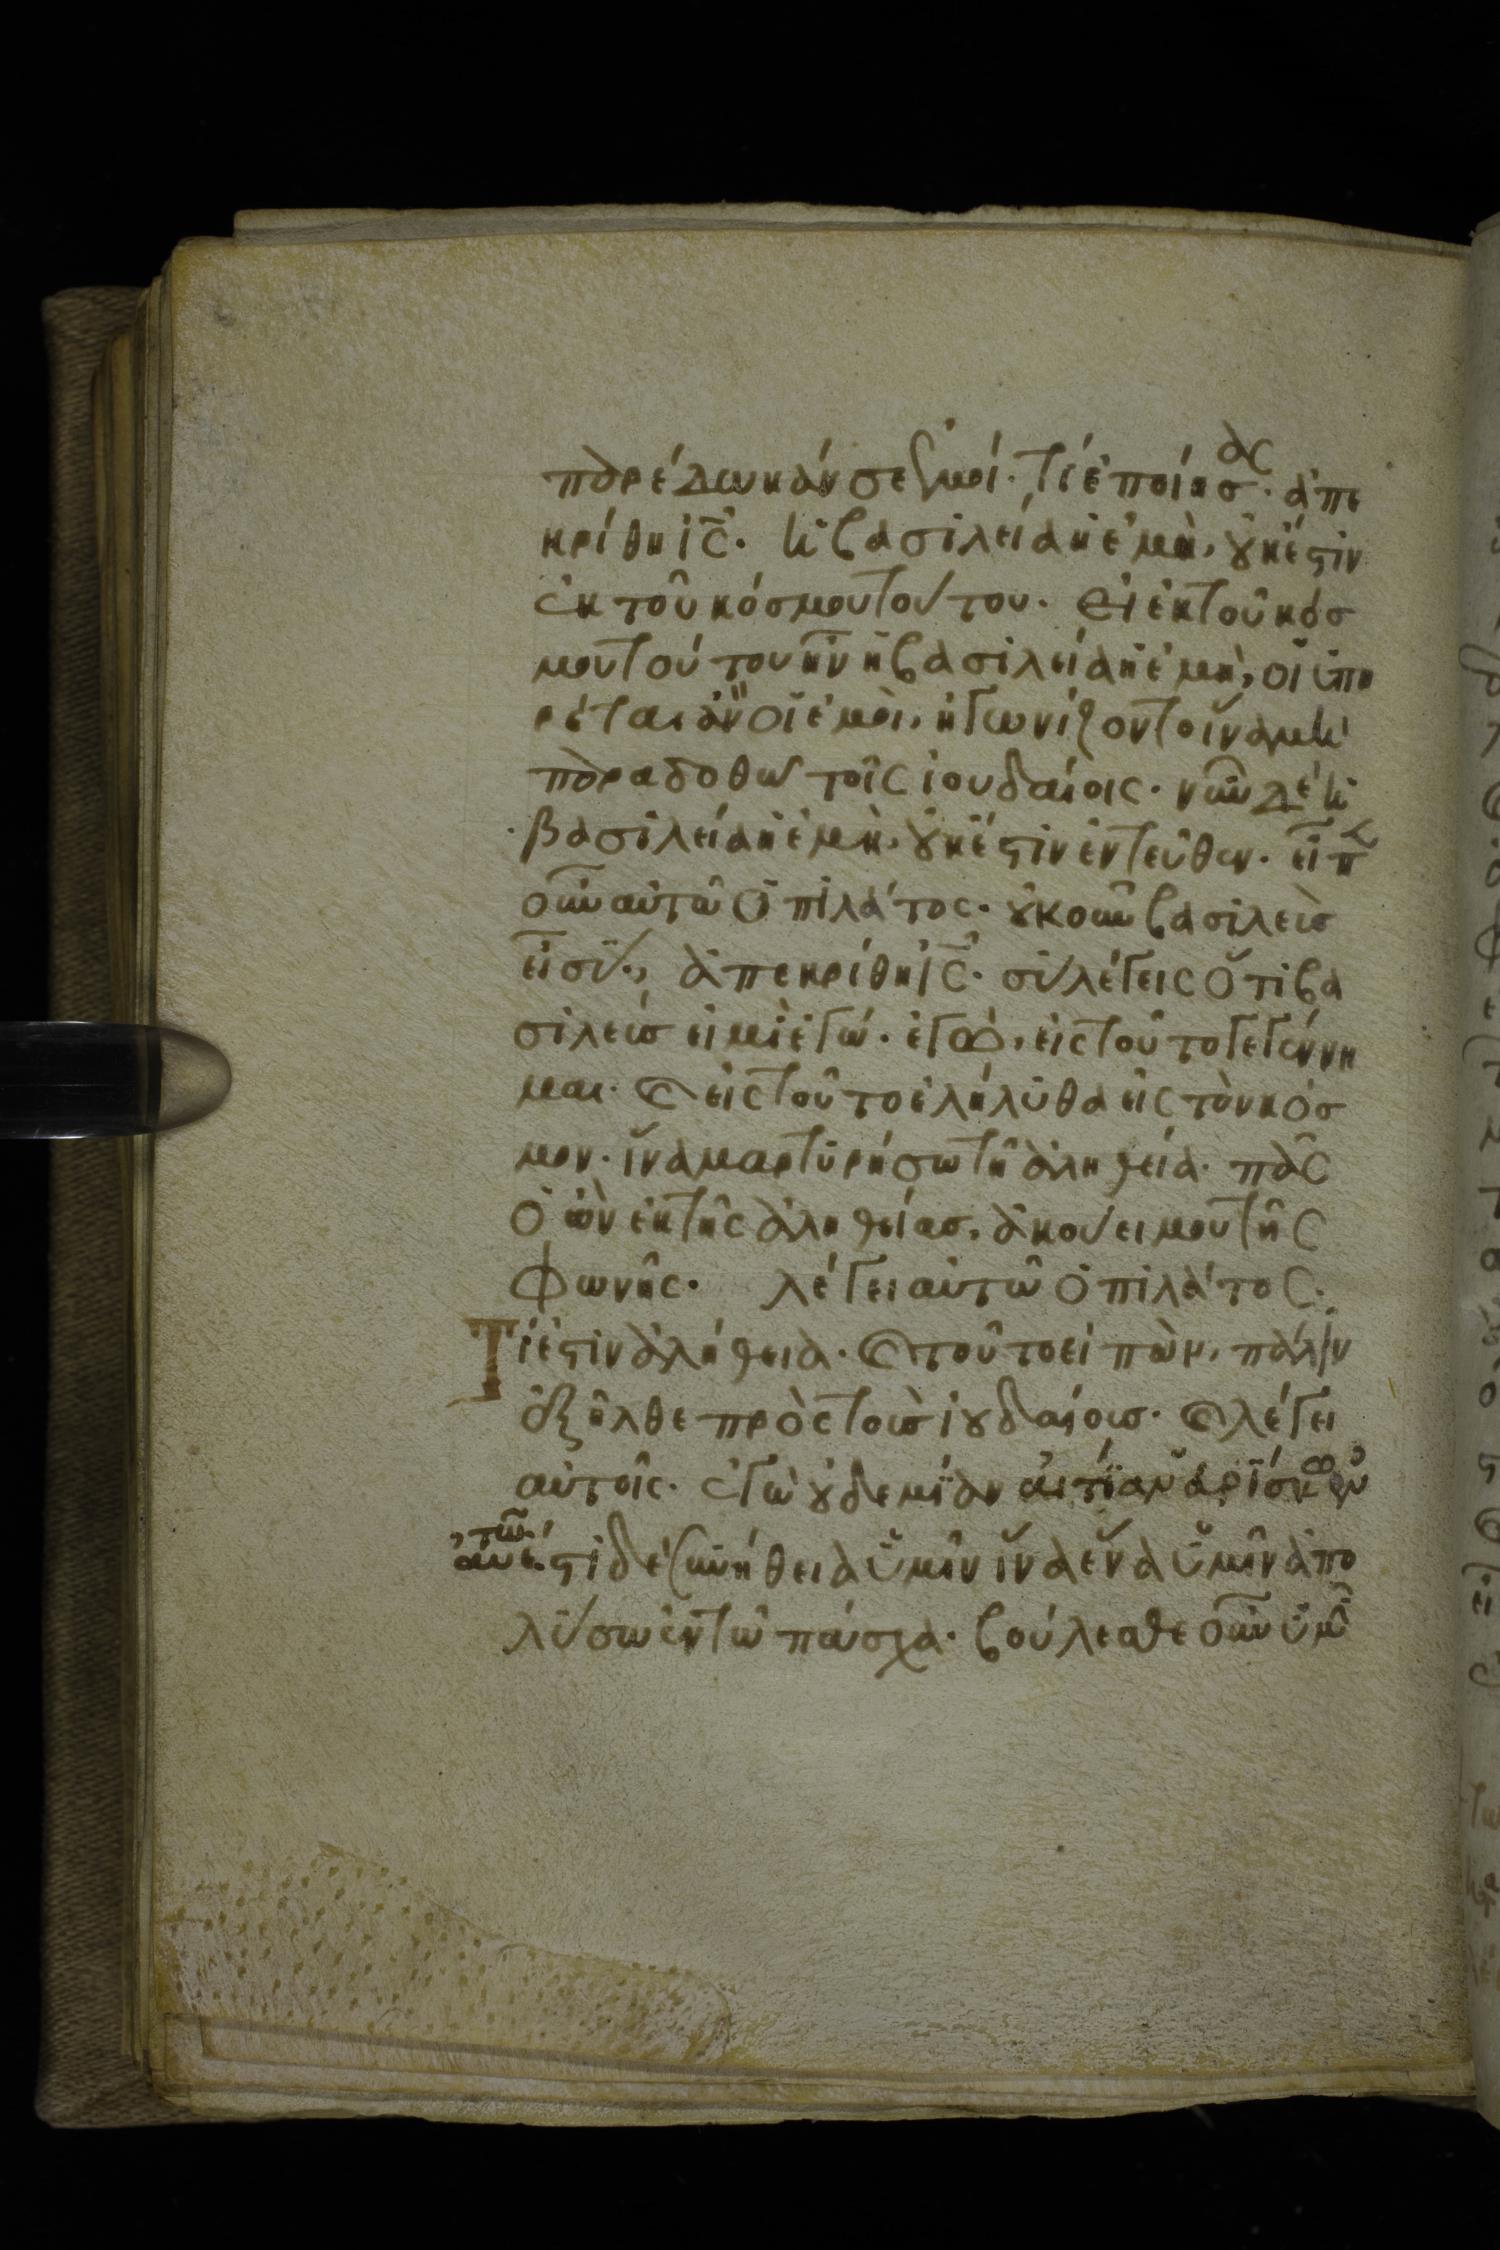 παρέδωκάν σε ἐμοί· τί ἐποίησας· ἀπε
κρίθη ἰς̄· ἡ βασιλεία ἡ ἐμὴ, οὐκ ἔστιν
ἐκ τοῦ κόσμου τούτου· εἰ ἐκ τοῦ κόσ
μου τούτου ἦν ἡ βασιλεία ἡ ἐμὴ, οἱ ὑπη
ρέται ἂν οἱ ἐμοὶ, ἠγωνίζοντο ἵνα μὴ
παραδοθῶ τοῖς ἰουδαίοις· νῦν δὲ ἡ
βασιλεία ἡ ἐμὴ, οὐκ ἔστιν ἐντεῦθεν· εἶπ
οὖν αὐτῶ ὁ πιλάτος· οὐκοῦν βασιλεὺς
εἶ σύ·, ἀπεκρίθη ἰς̄· σὺ λέγεις ὅτι βα
σιλεύς εἰμὶ ἐγώ· ἐγὼ, εἰς τοῦτο γεγέννη
μαι· καὶ εἰς τοῦτο ἐλήλυθα εἰς τὸν κόσ
μον· ἵνα μαρτυρήσω τῆ ἀληθεία· πᾶς
ὁ ὢν ἐκ τῆς ἀληθείας, ἀκούει μου τῆς
φωνῆς· λέγει αὐτῶ ὁ πιλάτος·
Τί ἐστιν ἀλήθεια· καὶ τοῦτο εἰπὼν, πάλιν
ἐξῆλθε πρὸς τοὺς ἰουδαίους· καὶ λέγει
αὐτοῖς· ἐγὼ οὐδεμίαν αἰτίαν εὑρίσκω ἐν
αὐτῶ· ἔστι δὲ συνήθεια ὑμῖν ἵνα ἕνα ὑμῖν ἀπο
λύσω ἐν τῶ πάσχα· βούλεσθε οὖν ὑμῖ